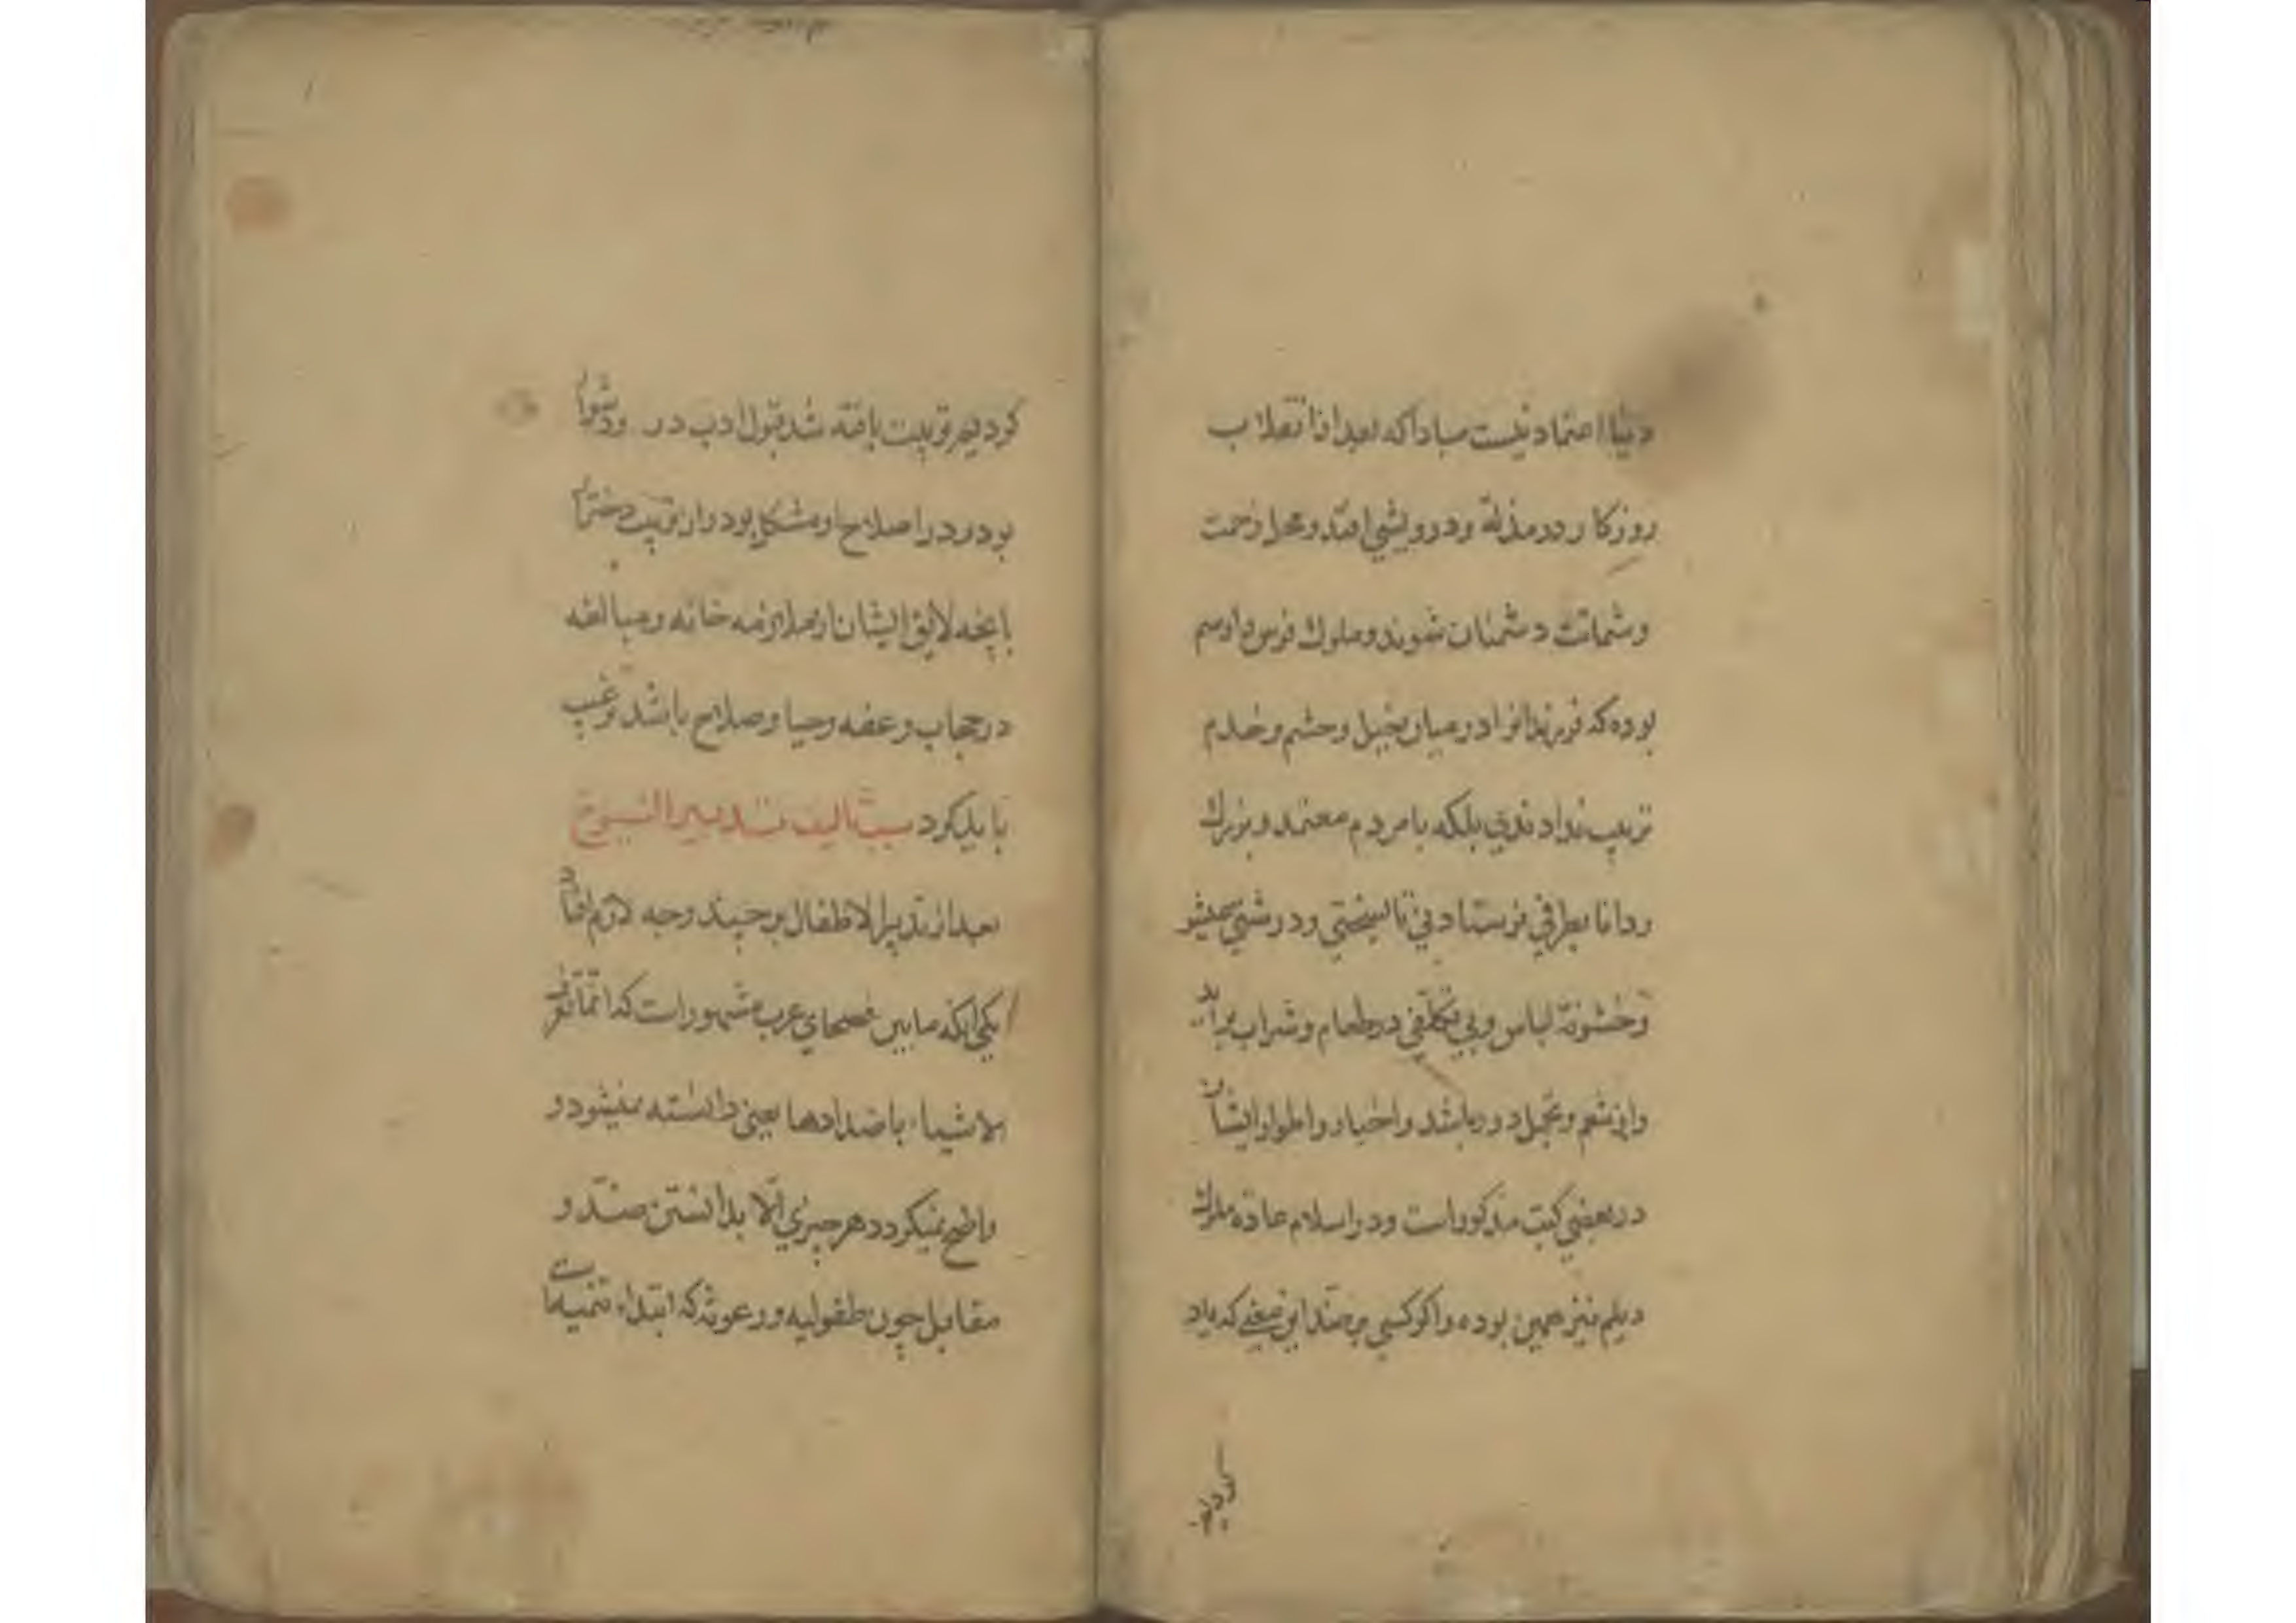 دنیا اعتماد نیست مبادا که بعد از انقلاب
روزکار در مذلة و درویشی افتد و محل زحمت
و شماتت دشمنان شوند و ملوک فرس را رسم
بوده که فرزندانرا در میان بخیل و حشم و خدم
تربیت ندادندی بلکه با مردم معتمد و بزرک
و دانا بطرفی فرستادنی تا بسختی و درشتی معیشو
و خشونة لباس و بی تکلفی در طعام و شراب براید
و از تنعم و تجمل دور باشد و اخبار و اطوار ایشان
در بعضی کتب مذکور است و در اسلام عادة ملوک
دیلم نیز همین بوده و اکر کسی بر ضد این معنی که یاد
کردیم
کردیم تربیت یافته شد قبول ادب در و دشوار
بود و در اصلاح او مشکل بود و از تربیت دختران
بانچه لایق ایشان از ملازمه خانه و مبالغه
در حجاب و عفه و حیا و صلاح باشد ترغیب
باید کرد سبب تالیف تدبیر الشیوخ
بعد از تدبیر الاطفال بر چند وجه لازم افتاد
یکی انکه مابین فصحای عرب مشهور است که انما تعرف
الاشیاء باضدادها یعنی دانسته نمیشود و
واضح نمیکردد هر چیزی الا بدانستن ضد و
مقابل چون طفولیه و رعونة که ابتداء تنمیه